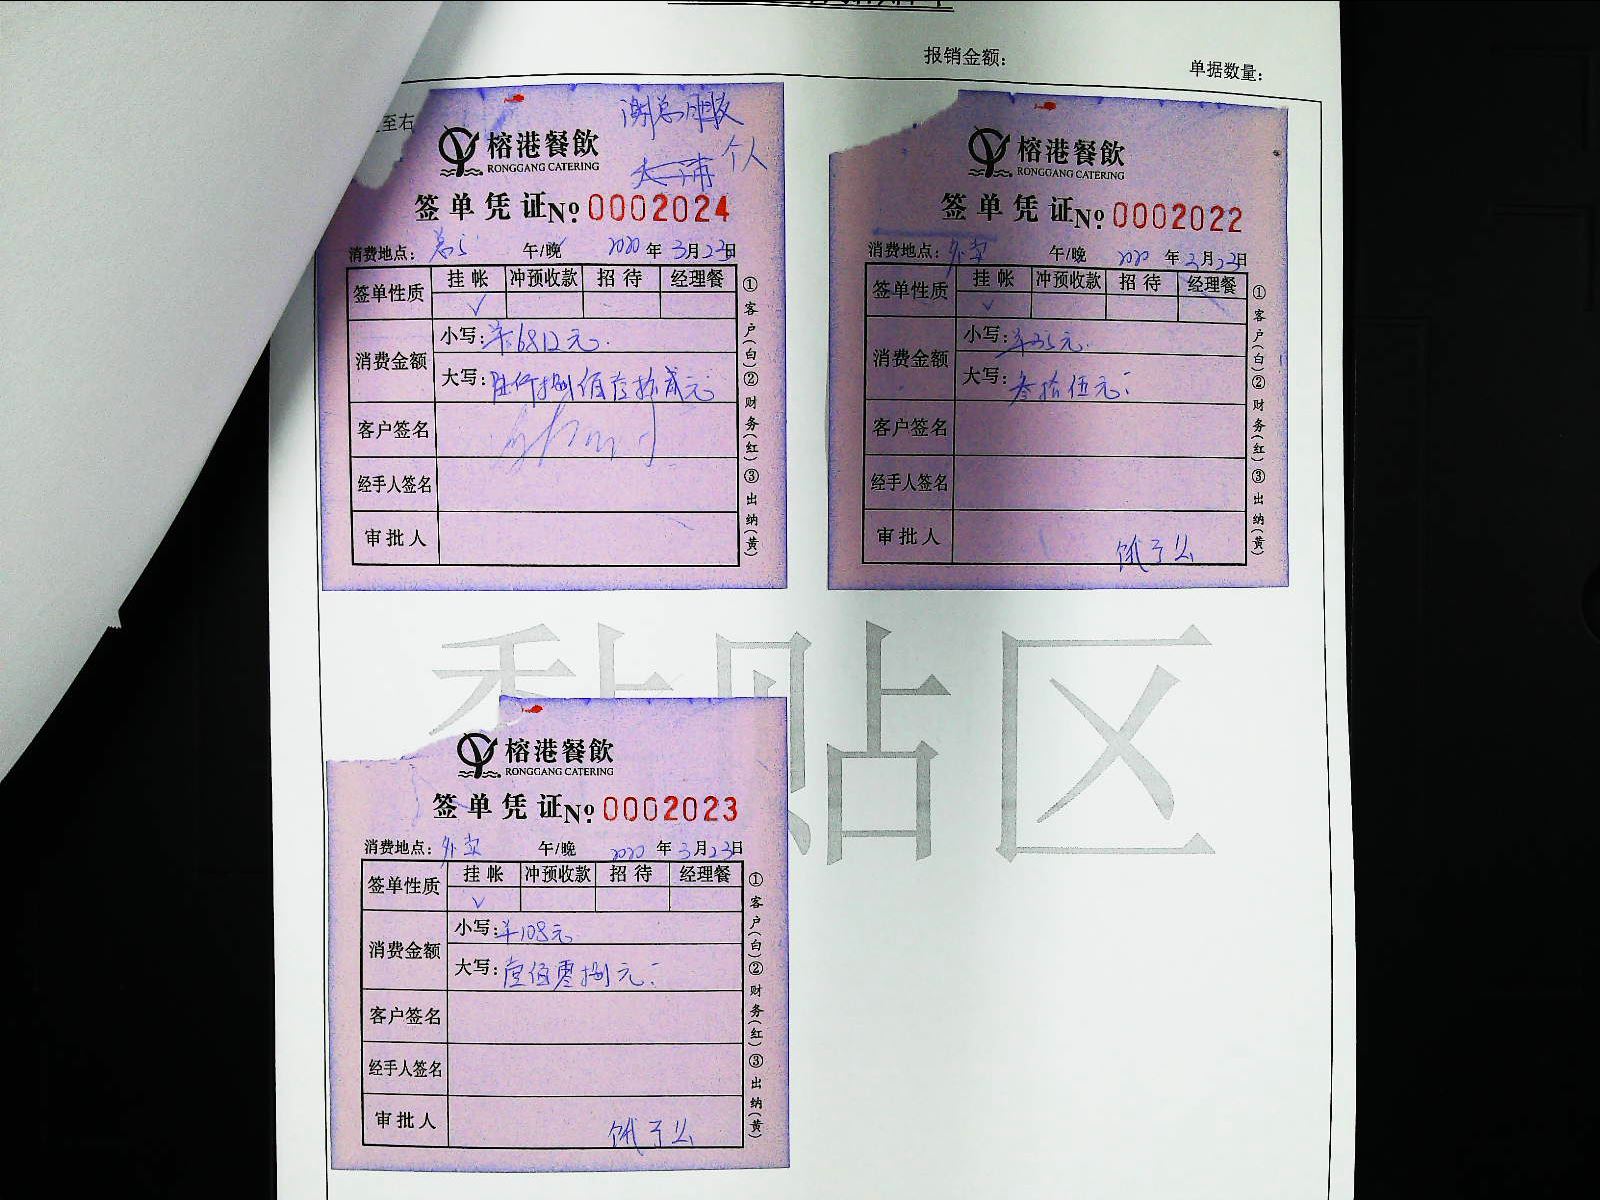 报销金额：
单据数量：
至右
个人
榕港餐飲
RONGGANG CATERING
签单凭证 № 0002024
消费地点： 午/晚 2020年3月23日
签单性质 挂帐 冲预收款 招待 经理餐
✓
消费金额
小写：¥6812元.
大写：陆仟捌佰壹拾贰元
客户签名
经手人签名
审批人
①客户(白)②财务(红)③出纳(黄)
榕港餐飲
RONGGANG CATERING
签单凭证 № 0002022
消费地点：外卖 午/晚 2020年3月23日
签单性质 挂帐 冲预收款 招待 经理餐
✓
消费金额
小写：¥35元.
大写：叁拾伍元
客户签名
经手人签名
审批人 饿了么
①客户(白)②财务(红)③出纳(黄)
粘贴区
榕港餐飲
RONGGANG CATERING
签单凭证 № 0002023
消费地点：外卖 午/晚 2020年3月23日
签单性质 挂帐 冲预收款 招待 经理餐
✓
消费金额
小写：¥108元
大写：壹佰零捌元
客户签名
经手人签名
审批人 饿了么
①客户(白)②财务(红)③出纳(黄)